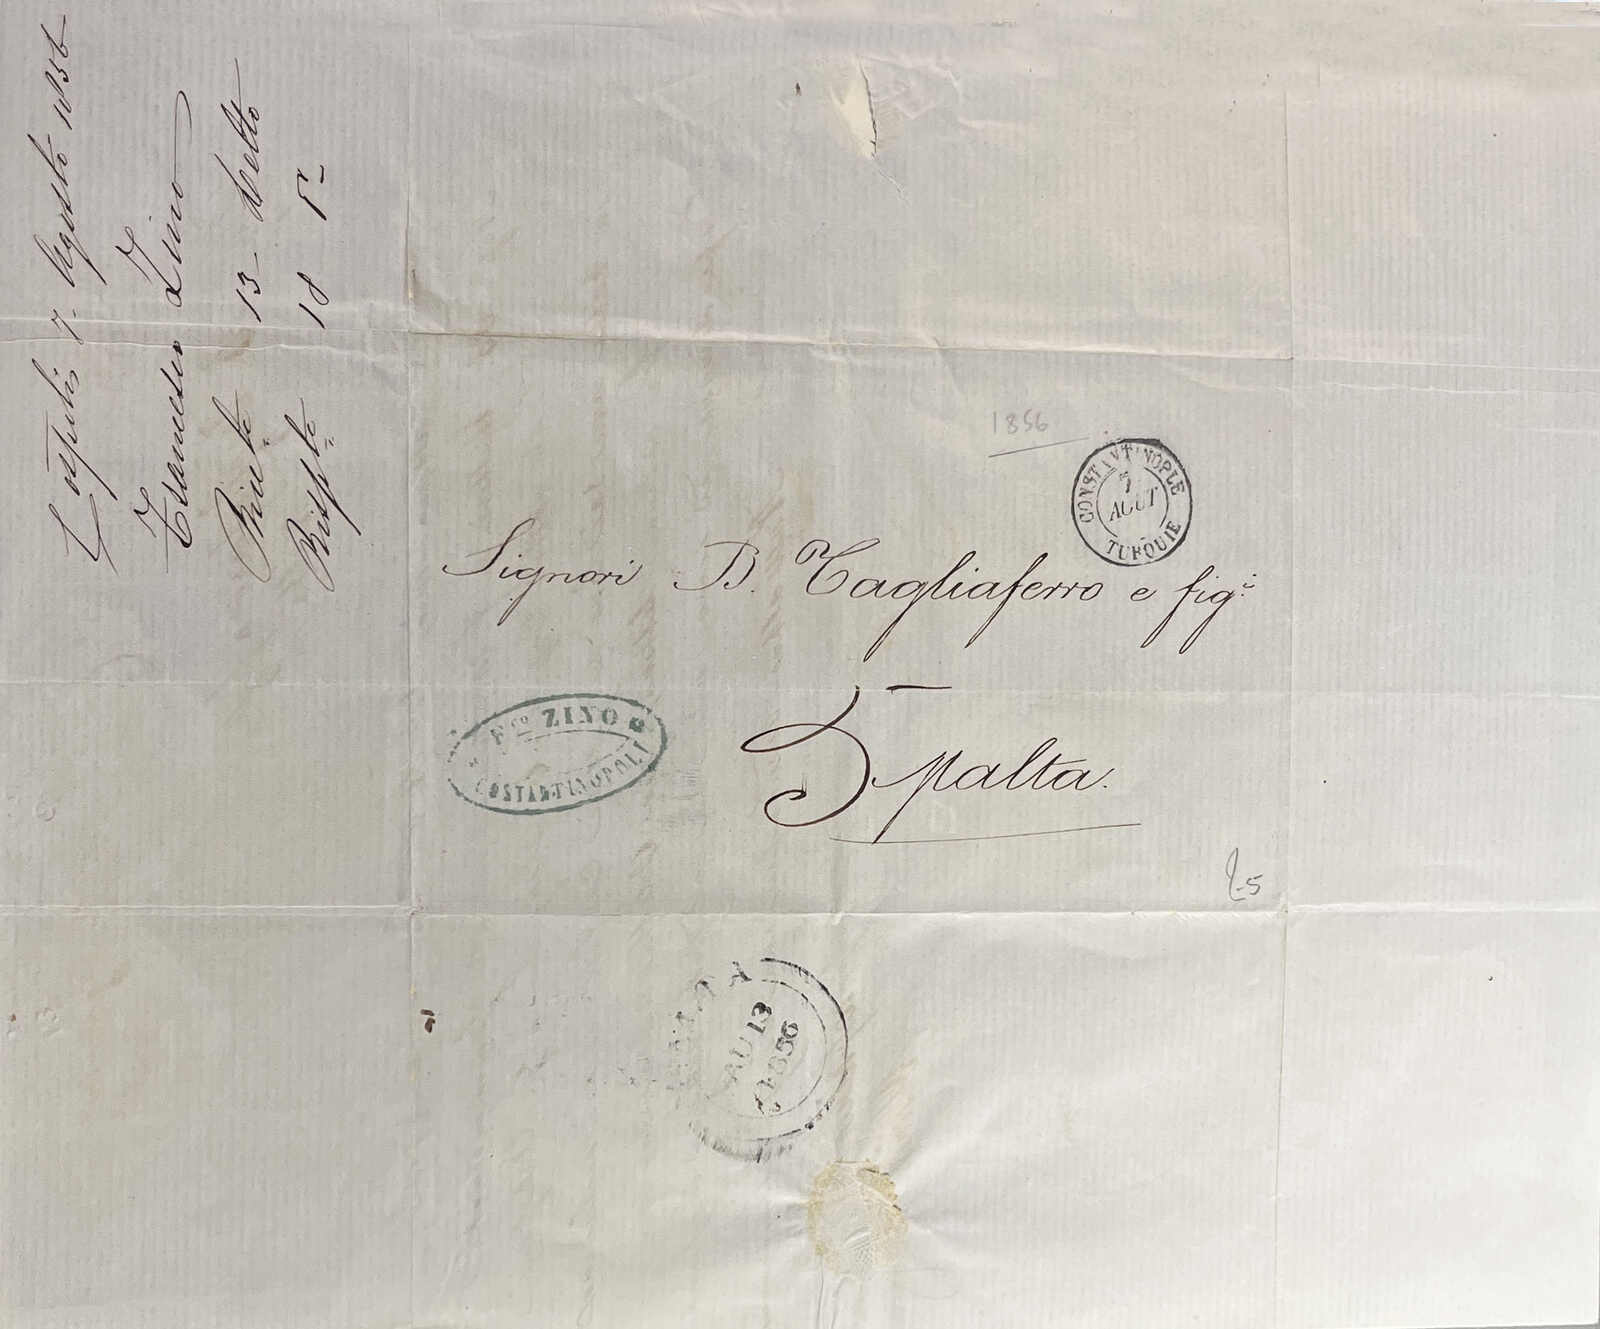 Costpoli 7 Agosto 1856
Francesco Zino
Ricte 13 detto
Rispte 18 Sr
1856
CONSTANTINOPLE
7
AOUT
TURQUIE
Signori B. Tagliaferro e figi
Malta.
5
Fco ZINO
COSTANTINOPOLI
5
MALTA
AU 13
1856